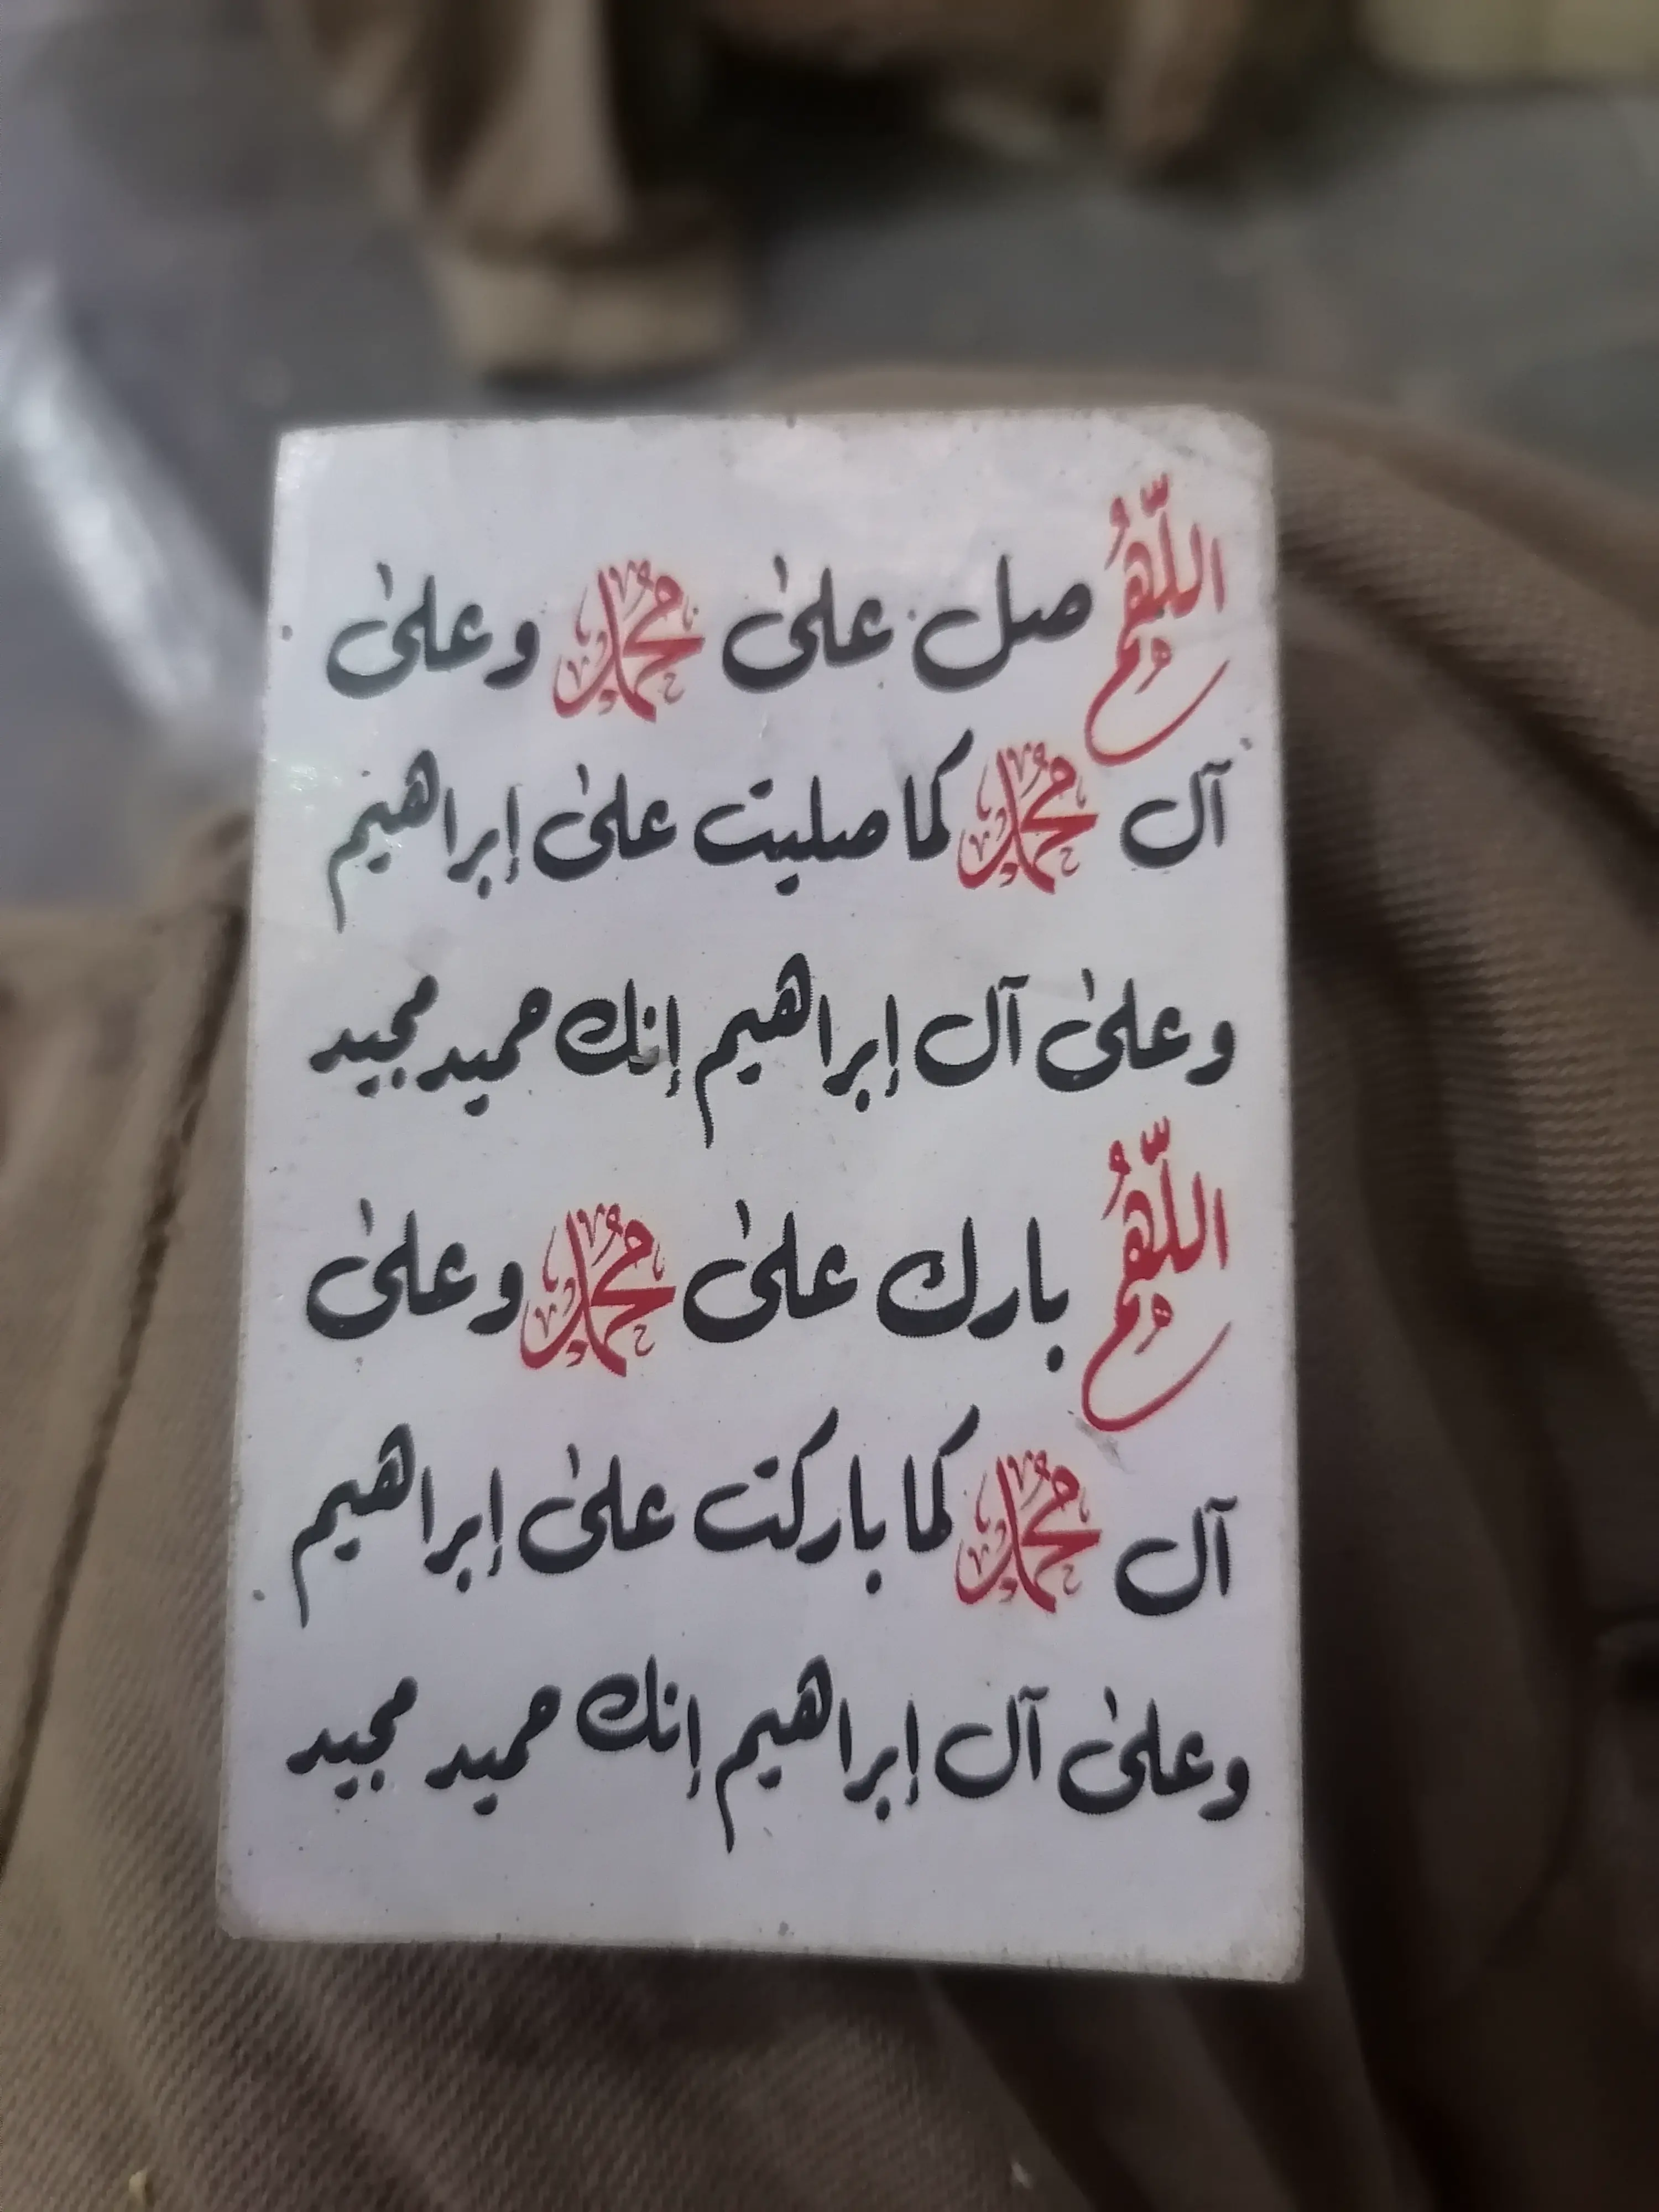 اللّهُم صل على محمد وعلى
آل محمد كما صليت على إبراهيم
وعلى آل إبراهيم إنك حميد مجيد
اللّهُم بارك على محمد وعلى
آل محمد كما باركت على إبراهيم
وعلى آل إبراهيم إنك حميد مجيد